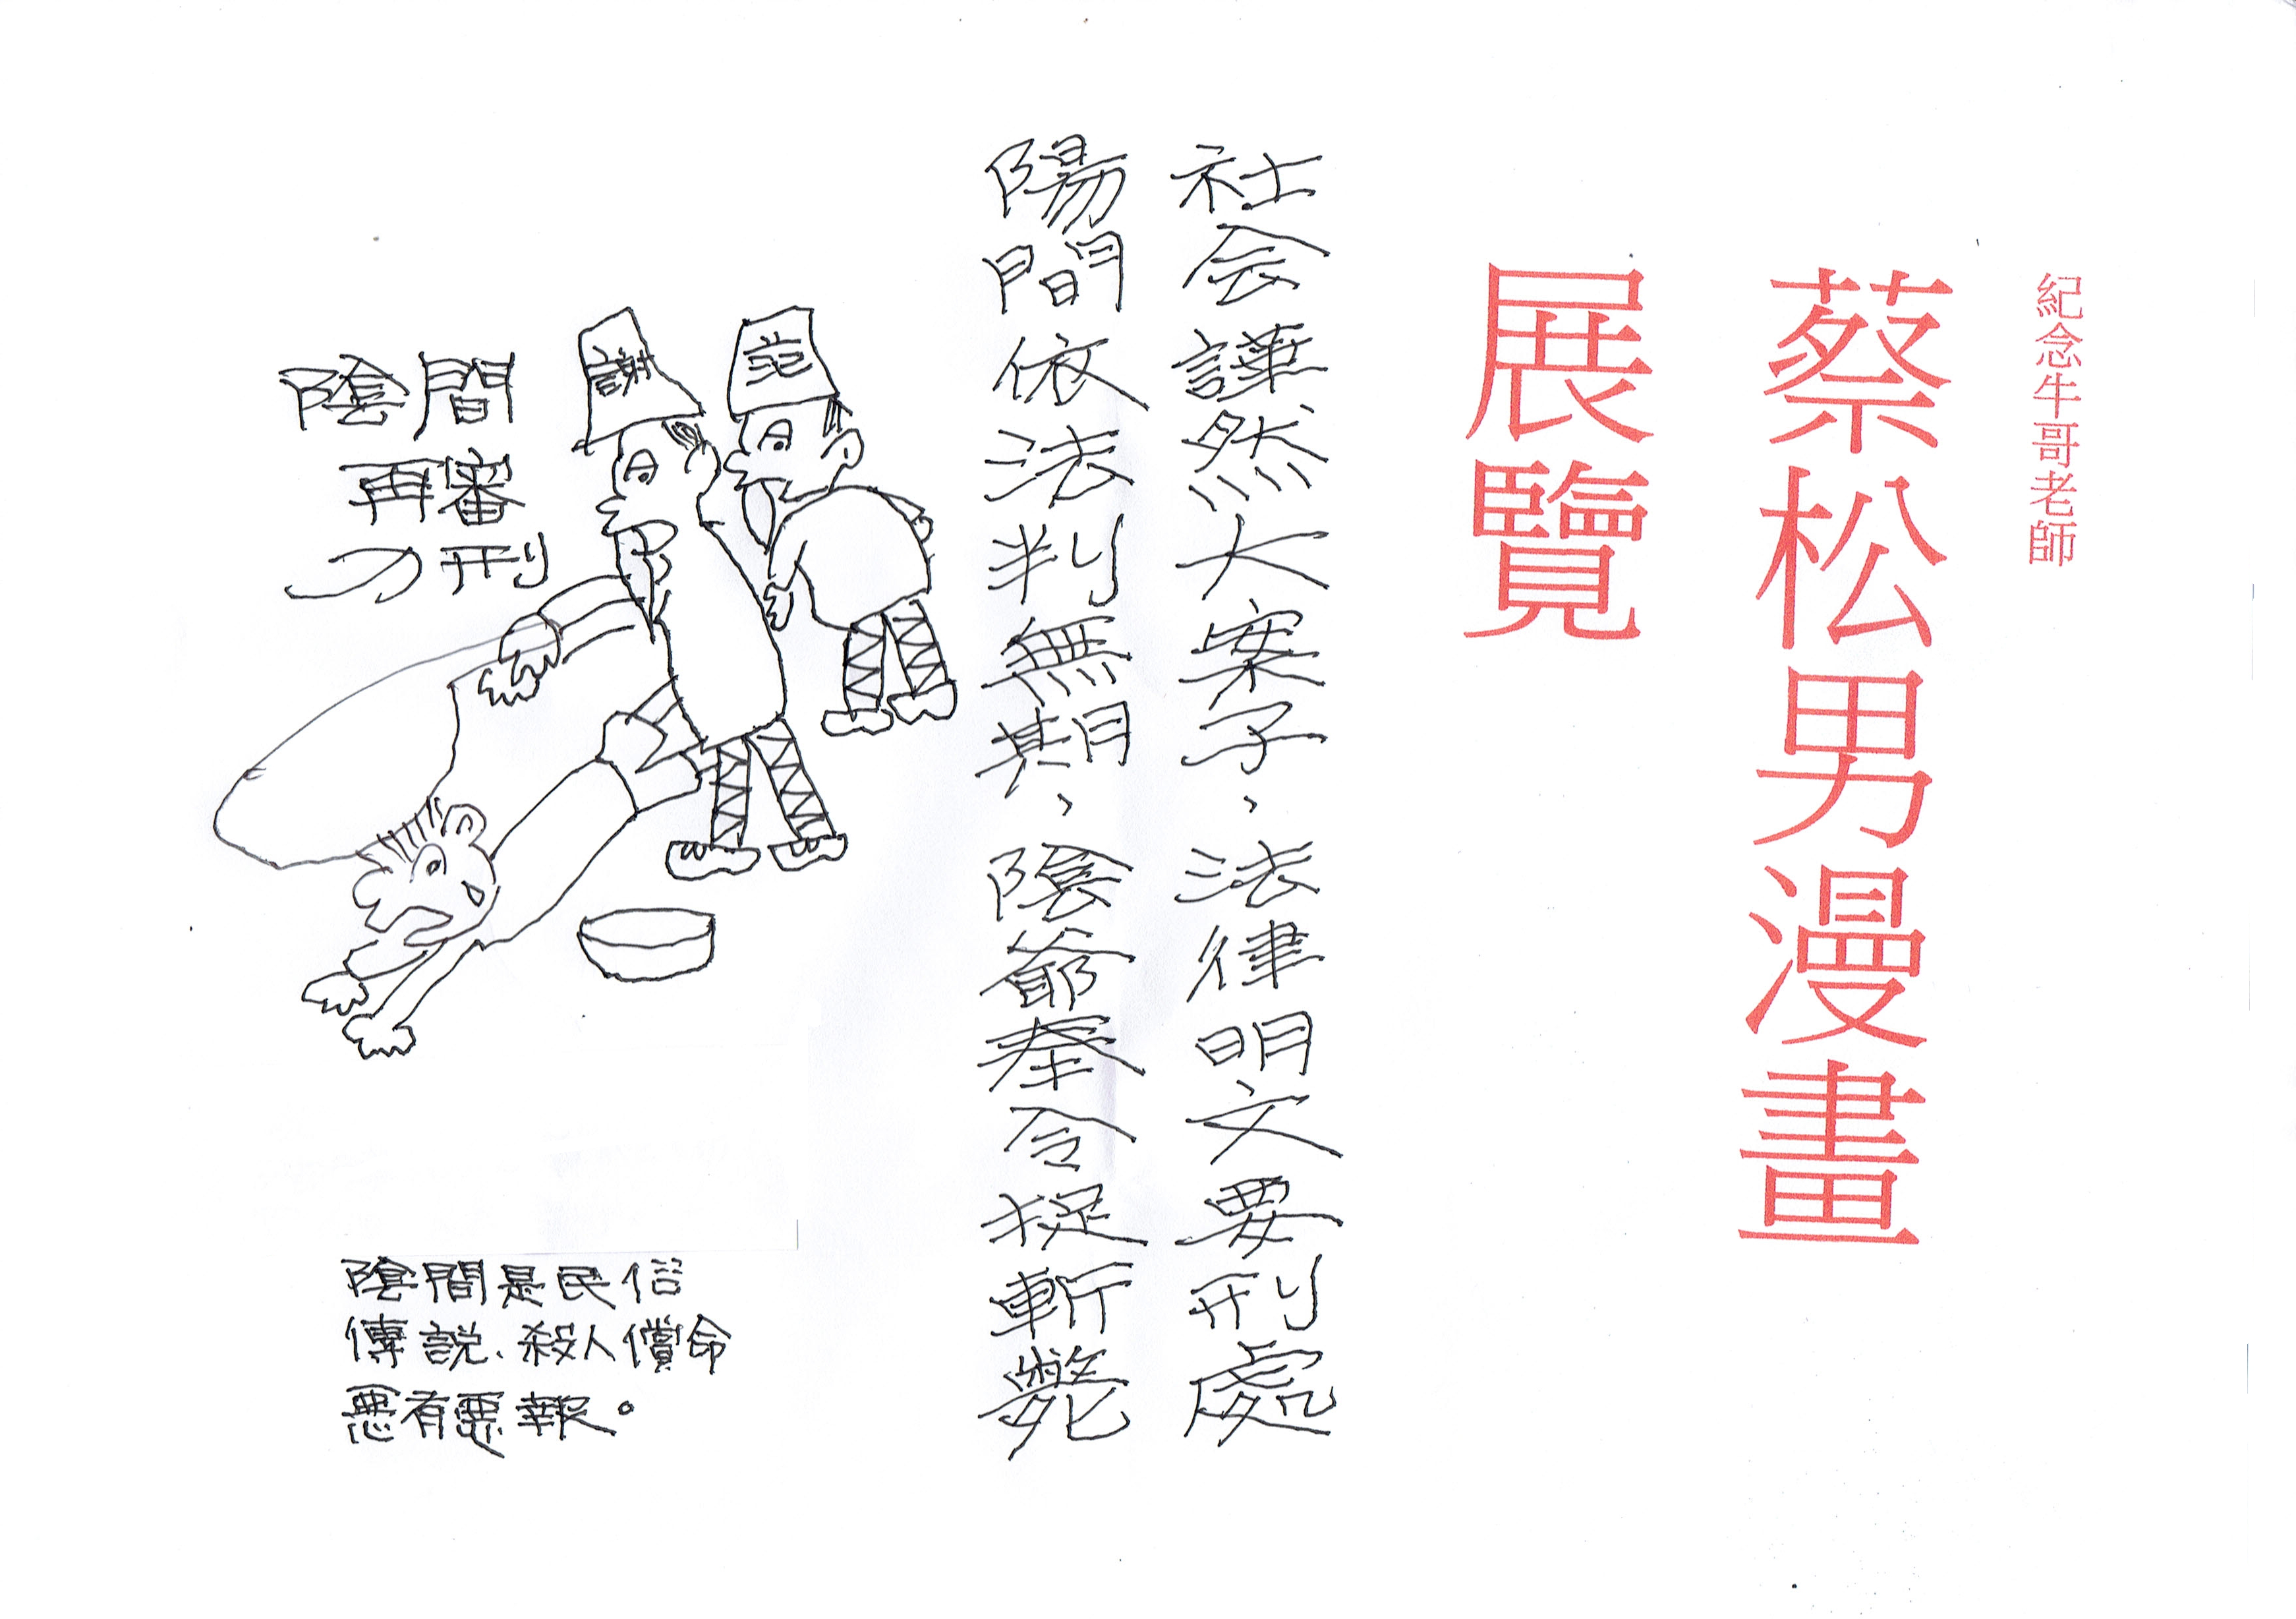 紀念牛哥老師
蔡松男漫畫
展覽
社会譁然大案子，法律明文要刑處
陽間依法判無期，陰爺奉令捉斬斃
范
謝
陰間
再審
刀刑
陰間是民俗
傳說、殺人償命
惡有惡報。